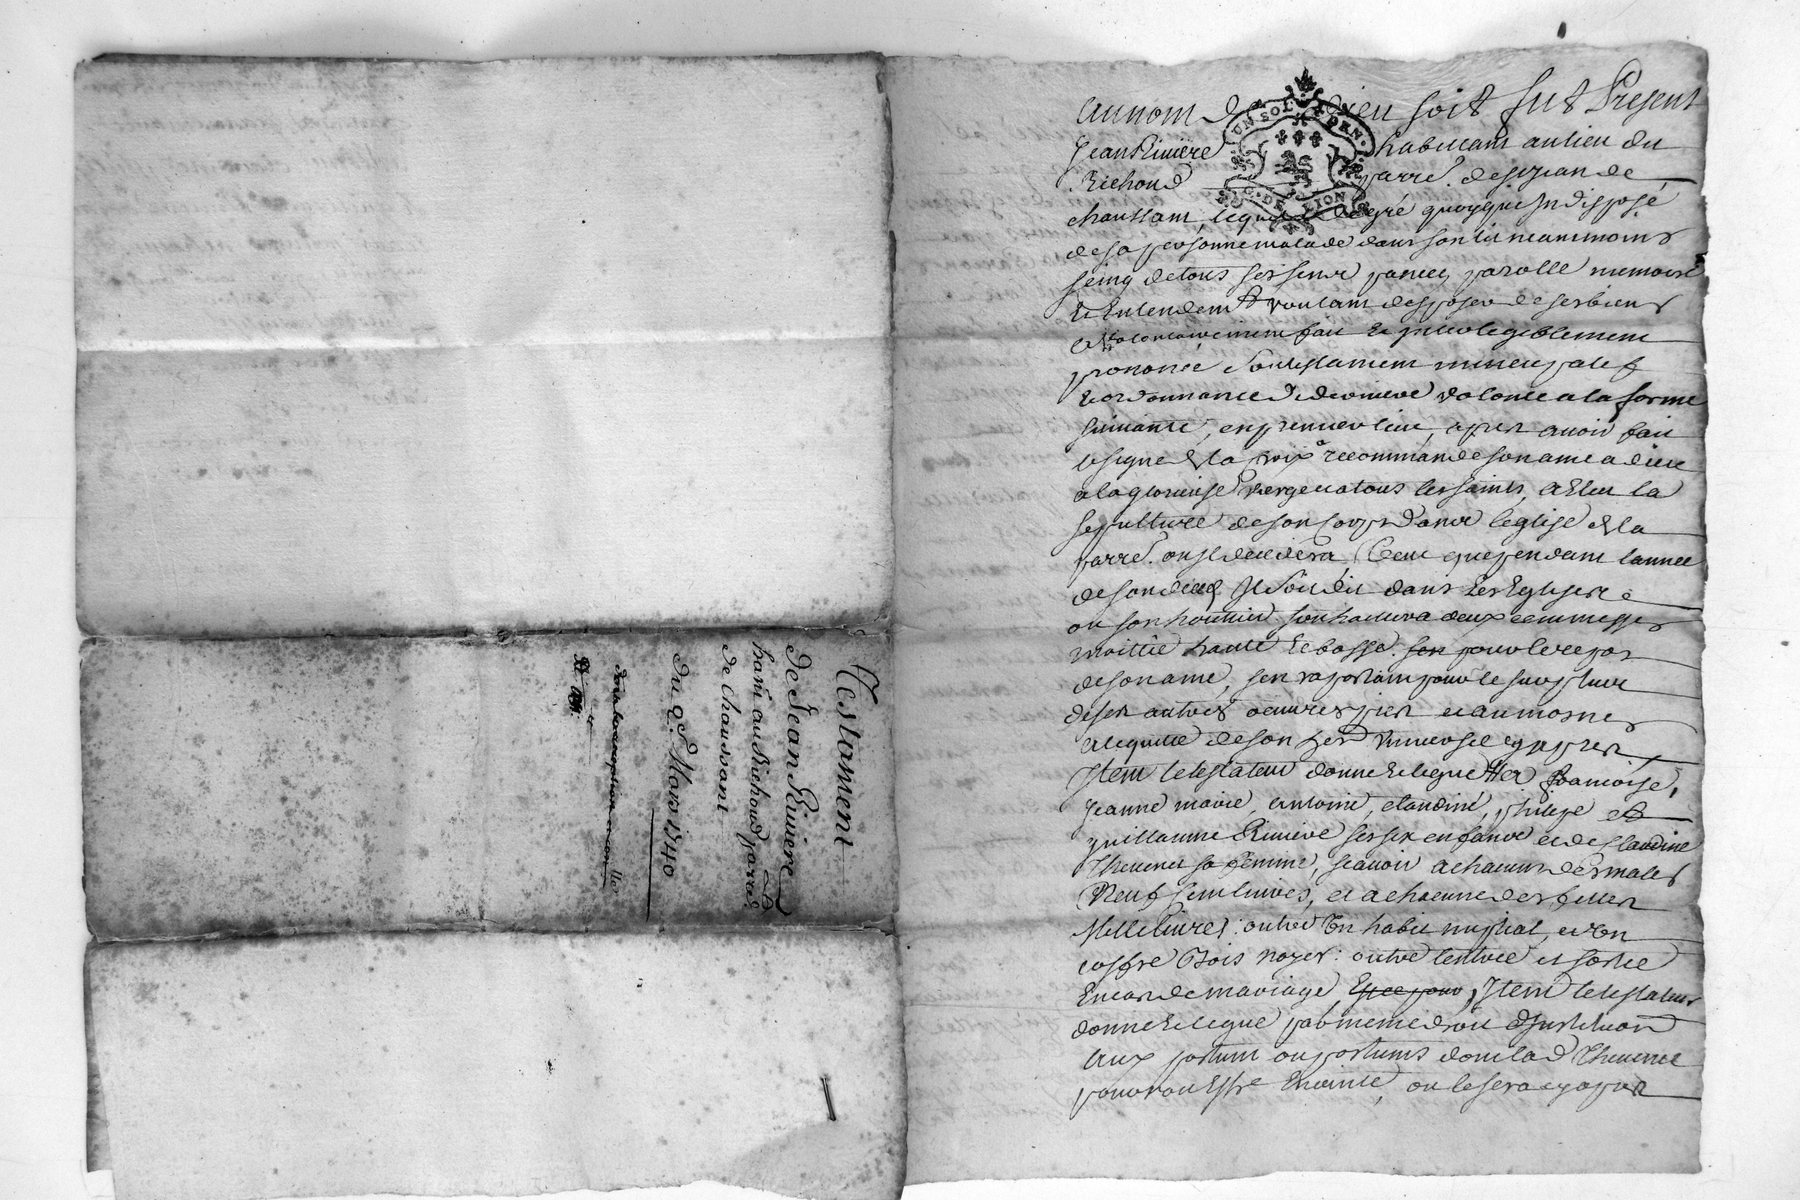 Testament
de Jean Riviere
hant au Richoud parre.
de Chaussant
Du 28 Mars 1740
UN SOL
G. DE LION
Au nom de Dieu soit fut Present
Jean Riviere habitant au lieu du
Richoud parre. de st jean de
chaussant, lequel de gré quoyque Indisposé
de sa personne malade dans son lit neanmoins
seing de tous ses sens pancee parolle memoire
Et Entendemt voulant disposer de ses biens
a volontairement fait Et intelegiblement
prononcé son testament nuncupatif
Et ordonnance de derniere volonte a la forme
suivante, en premier lieu, apres avoir fait
le signe de la croix recommande son ame a dieu
a la glorieuse vierge et a tous les saints, a Eleu la
sepulture de son corps dans leglise de la
parre. ou jl decedera, Veut que pendant lannee
de son deces Il soit dit dans les Eglises
ou son heritier souhaitera deux cent messes
moittié haute Et basse pour le repos
de son ame, sen raportant pour le surplus
des autres oeuvres pies et aumosnes
a lequité de son her universel cy apres
Item le testateur donne Et legue a francoise,
Jeanne marie, antoine, claudine, philipe et
guillaume Riviere ses six enfans et de Claudine
Thevenet sa femme, scavoir a chacun des males
Neuf cent livres, et a chacune des filles
Mille livres: outre Un habit nuptial, et Un
coffre Bois noyer: outre lentree et sortie
En cas de mariage, Item le testateur
donne Et legue par meme droit dinstitution
aux postum ou postums dont lad Thevenet
pourroit Estre Enceinte, ou le sera cy apres